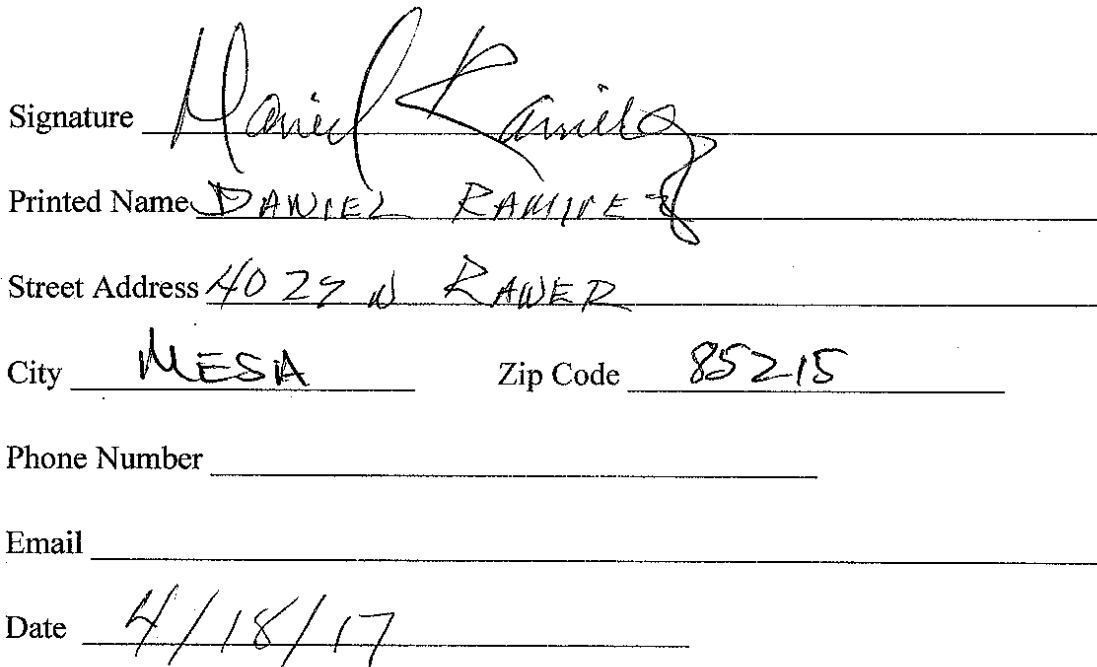 Signature Daniel Ramirez
Printed Name DANIEL RAMIREZ
Street Address 4029 N RANER
City MESA Zip Code 85215
Phone Number
Email
Date 4/18/17